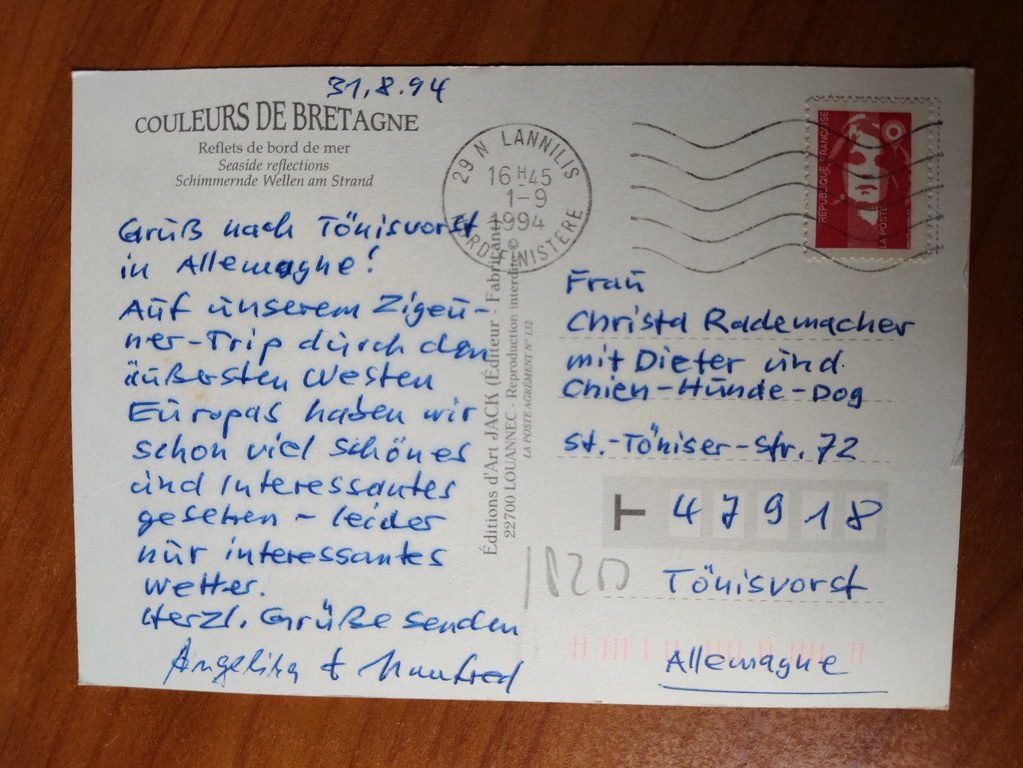 31.8.94
COULEURS DE BRETAGNE
Reflets de bord de mer
Seaside reflections
Schimmernde Wellen am Strand
Gruß nach Tönisvorst
in Allemagne!
Auf unserem Zigeu-
ner-Trip durch den
äußersten Westen
Europas haben wir
schon viel schönes
und Interessantes
gesehen – leider
nur interessantes
Wetter.
Herzl. Grüße senden
Angelika & Manfred
Éditions d'Art JACK (Éditeur - Fabricant)
22700 LOUANNEC - Reproduction interdite ©
LA POSTE AGRÉMENT N° 132
29 N LANNILIS
16 H 45
1-9
1994
NORD FINISTERE
REPUBLIQUE FRANÇAISE
LA POSTE
Frau
Christa Rademacher
mit Dieter und
Chien-Hunde-Dog
St.-Töniser-Str. 72
T 47918
Tönisvorst
Allemagne